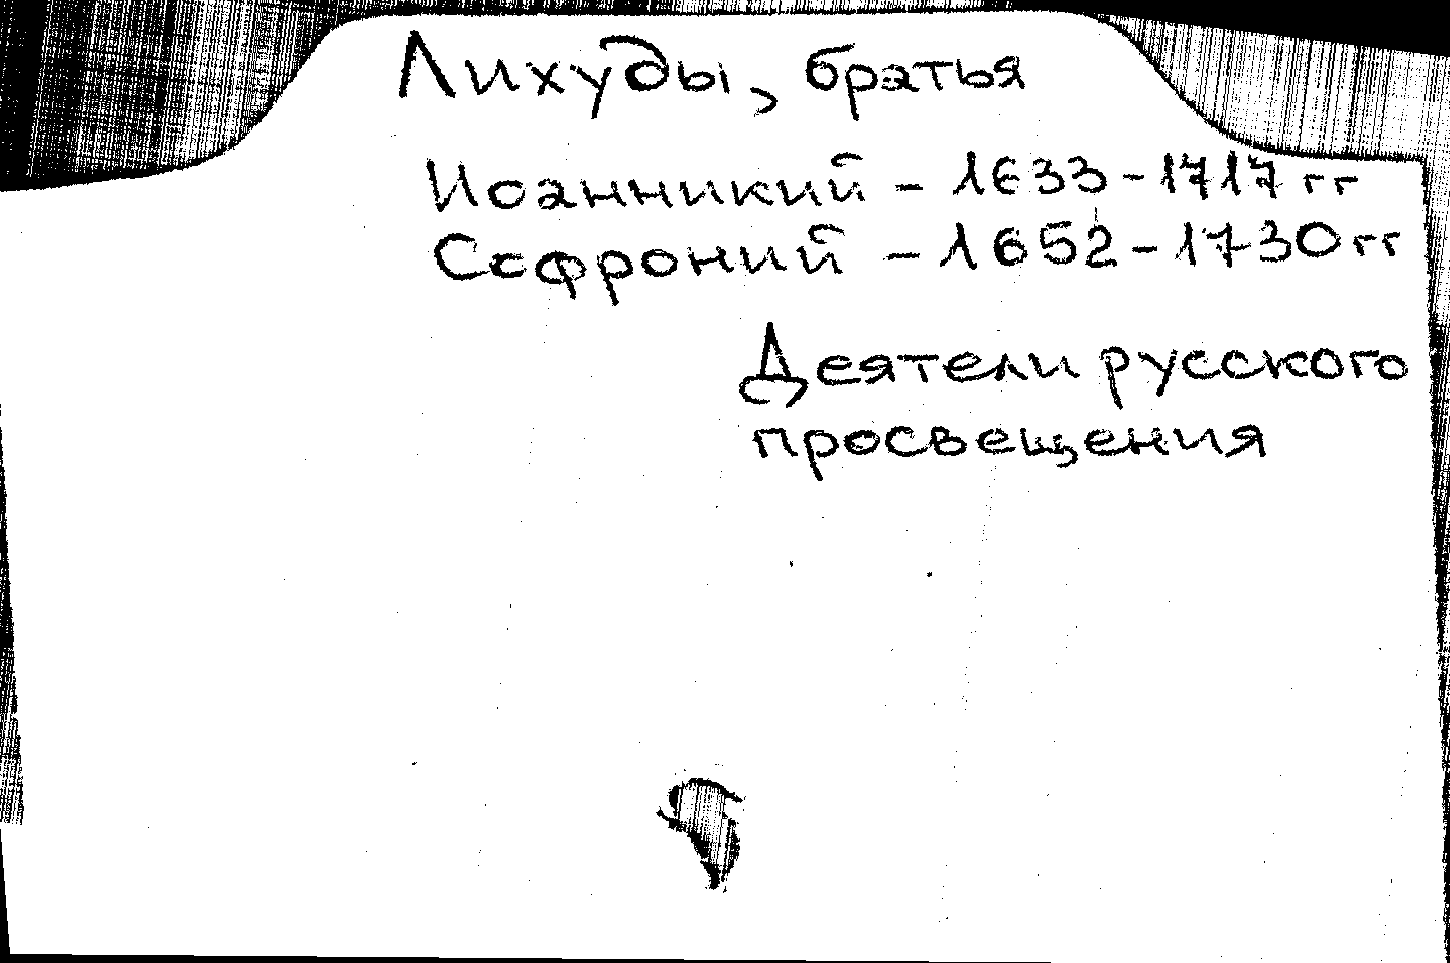 Лихуды, братья
Иоанникий - 1633-1717 гг
Софроний - 1652-1730 гг
Деятели русского
просвещения